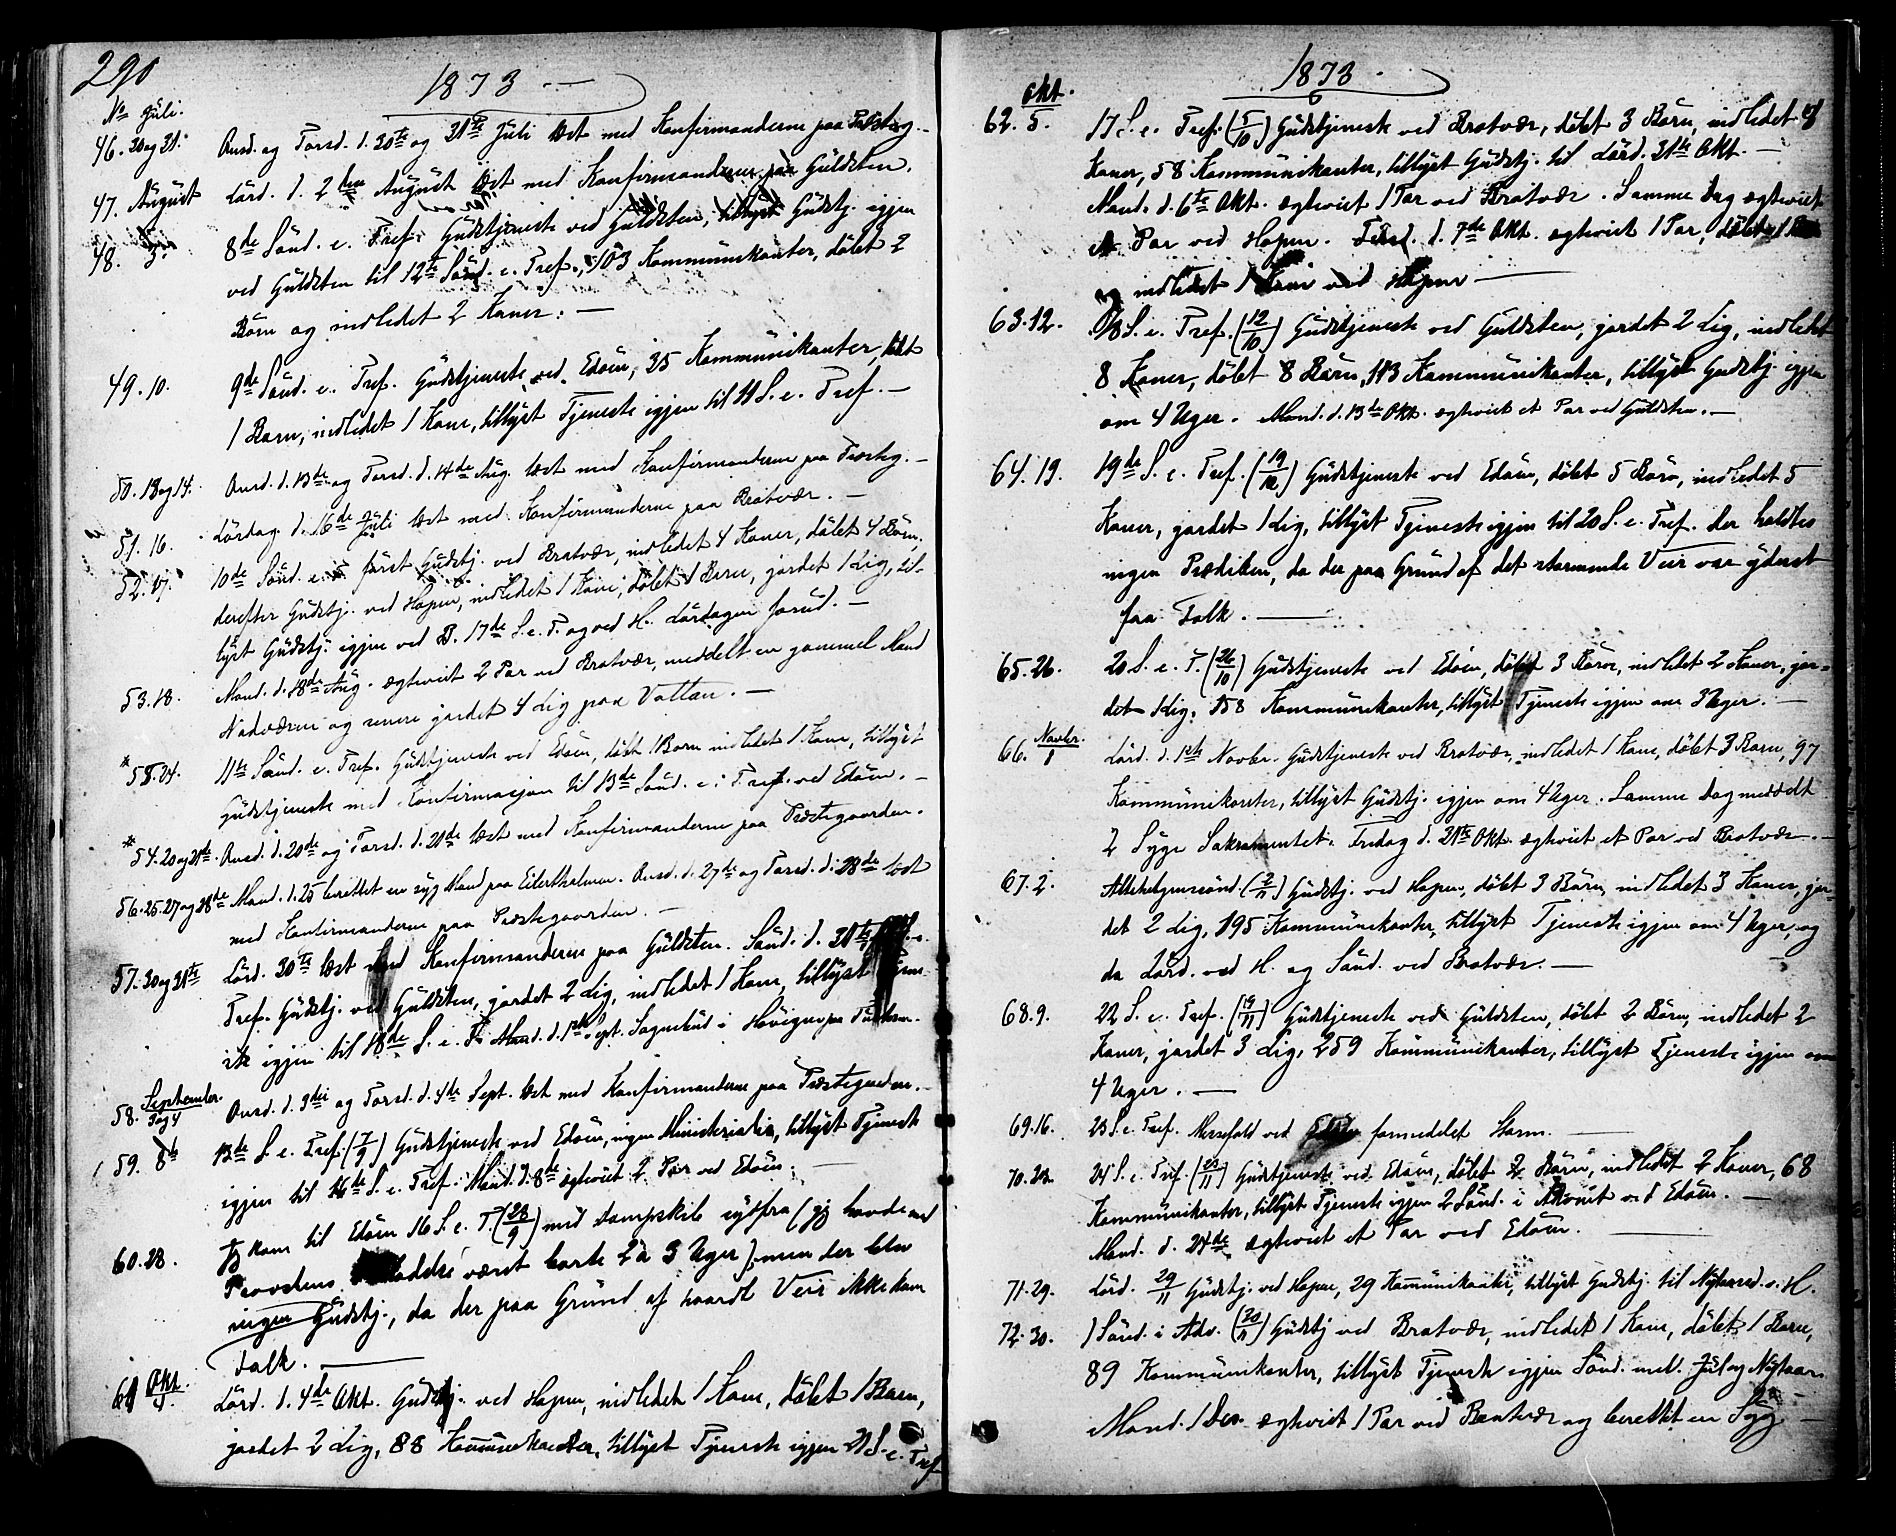 290
1873
No Juli.
46. 30 og 31. Onsd. og Torsd. d. 30te og 31te Juli læst med Konfirmanderne paa Præsteg.
47. August Lörd. d. 2den August læst med Konfirmanderne paa Guldsten.
48. 3. 8de Sönd. e. Tref. Gudstjeneste ved Guldsten, tillyst Gudstj. igjen
ved Guldsten til 12te Sönd. e. Tref., 103 Kommunikanter, döbt 2
Börn og indledet 2 Koner. —
49. 10. 9de Sönd. e. Tref. Gudstjeneste ved Edöen, 35 Kommunikanter, döbt
1 Barn, indledet 1 Kone, tillyst Tjeneste igjen til 11 S. e. Tref. —
50. 13 og 14. Onsd. d. 13de og Torsd. d. 14de Aug. læst med Konfirmanderne paa Præsteg. —
51. 16. Lördag d. 16de Juli læst med Konfirmanderne paa Bratvær. —
52. 17. 10de Sönd. e. T. först Gudstj. ved Bratvær, indledet 4 Koner, döbt 4 Börn,
derefter Gudstj. ved Hopen, indledet 1 Kone, döbt 1 Barn, jordet 1 Lig, til-
lyst Gudstj. igjen ved B. 17de S. e. T. og ved H. Lördagen forud. —
53. 18. Mand. d. 18de Aug. ægteviet 2 Par ved Bratvær, meddelt en gammel Mand
Nadveren og senere jordet 4 Lig paa Vattan. —
* 55. 24. 11te Sönd. e. Tref. Gudstjeneste ved Edöen, döbt 1 Barn indledet 1 Kone, tillyst
Gudstjeneste med Konfirmasjon til 13de Sönd. e. Tref. ved Edöen. —
* 54. 20 og 21de. Onsd. d. 20de og Torsd. d. 21de læst med Konfirmanderne paa Præstegaarden.
56. 25. 27 og 28de Mand. d. 25 berettet en syg Mand paa Eilertholmen. Onsd. d. 27de og Torsd. d. 28de læst
med Konfirmanderne paa Præstegaarden. —
57. 30 og 31te Lörd. 30te læst med Konfirmanderne paa Guldsten. Sönd. d. 31te
Tref. Gudstj. ved Guldsten, jordet 2 Lig, indledet 1 Kone, tillyst
igjen til 18de S. e. T. Mand. d. 1ste Sept. Sognebud i
58. September 3 og 4 Onsd. d. 3die og Torsd. d. 4de Sept. læst med Konfirmanderne paa Præstegaarden. —
59. 13de S. e. Tref. (7/9) Gudstjeneste ved Edöen, ingen Ministerialia, tillyst Tjeneste
igjen til 16de S. e. Tref. Mand. d. 8de ægteviet 2 Par ved Edöen. —
60. 28. Jeg kom til Edöen 16 S. e. T. (28/9) med Dampskib sydfra (jeg havde med
Provstens været borte 2 à 3 Uger), men der blev
ingen Gudstj., da der paa Grund af haardt Veir ikke kom
Folk. —
61 Okt. Lörd. d. 4de Okt. Gudstj. ved Hopen, indledet 1 Kone, döbt 1 Barn,
jordet 2 Lig, 88 Kommunikanter, tillyst Tjeneste igjen 21 S. e. Tref
1873.
Okt.
62. 5. 17 S. e. Tref. (5/10) Gudstjeneste ved Bratvær, döbt 3 Börn, indledet 4
Koner, 58 Kommunikanter, tillyst Gudstj. til Lörd. 31te Okt. —
Mand. d. 6te Okt. ægteviet 1 Par ved Bratvær. Samme Dag ægteviet
et Par ved Hopen. Tirsd. d. 7de Okt. ægteviet 1 Par, döbt 1
og indledet 1 Kone ved Hopen —
63. 12. 18 S. e. Tref. (12/10) Gudstjeneste ved Guldsten, jordet 2 Lig, indledet
8 Koner, döbt 8 Börn, 113 Kommunikanter, tillyst Gudstj. igjen
om 4 Uger. Mand. d. 13de Okt. ægteviet et Par ved Guldsten. —
64. 19. 19de S. e. Tref. (19/10) Gudstjeneste ved Edöen, döbt 5 Börn, indledet 5
Koner, jordet 1 Lig, tillyst Tjeneste igjen til 20 S. e. Tref. Der holdtes
ingen Prædiken, da der paa Grund af det stormende Veir var yderst
faa Folk. —
65. 26. 20 S. e. T. (26/10) Gudstjeneste ved Edöen, döbt 3 Börn, indledet 2 Koner, jor-
det 1 Lig, 158 Kommunikanter, tillyst Tjeneste igjen om 3 Uger. —
66. Novbr. 1 Lörd. d. 1ste Novbr. Gudstjeneste ved Bratvær, indledet 1 Kone, döbt 3 Börn, 97
Kommunikanter, tillyst Gudstj. igjen om 4 Uger. Samme Dag meddelt
2 Syge Sakramentet. Fredag d. 31te Okt. ægteviet et Par ved Bratvær. —
67. 2. Allehelgenssönd. (2/11) Gudstj. ved Hopen, döbt 3 Börn, indledet 3 Koner, jor-
det 2 Lig, 195 Kommunikanter, tillyst Tjeneste igjen om 4 Uger, og
da Lörd. ved H. og Sönd. ved Bratvær. —
68. 9. 22 S. e. Tref. Gudstjeneste ved Guldsten, döbt 2 Börn, indledet 2
Koner, jordet 3 Lig, 259 Kommunikanter, tillyst Tjeneste igjen om
4 Uger. —
69. 16. 23 S. e. Tref. Messefald ved Edöen formedelst Storm. —
70. 23. 24 S. e. Tref. (23/11) Gudstjeneste ved Edöen, döbt 2 Börn, indledet 2 Koner, 68
Kommunikanter, tillyst Tjeneste igjen 2 Sönd. i Advent ved Edöen. —
Mand. d. 24de ægteviet et Par ved Edöen. —
71. 29. Lörd. 29/11 Gudstj. ved Hopen, 29 Kommunikanter, tillyst Gudstj. til Nytaarsd. v. H.
72. 30. 1 Sönd. i Adv. (30/11) Gudstj ved Bratvær, indledet 1 Kone, döbt 1 Barn,
89 Kommunikanter, tillyst Tjeneste igjen Sönd. mell. Jul og Nytaar.
Mand. 1 Des. ægteviet 1 Par ved Bratvær og berettet en Syg —